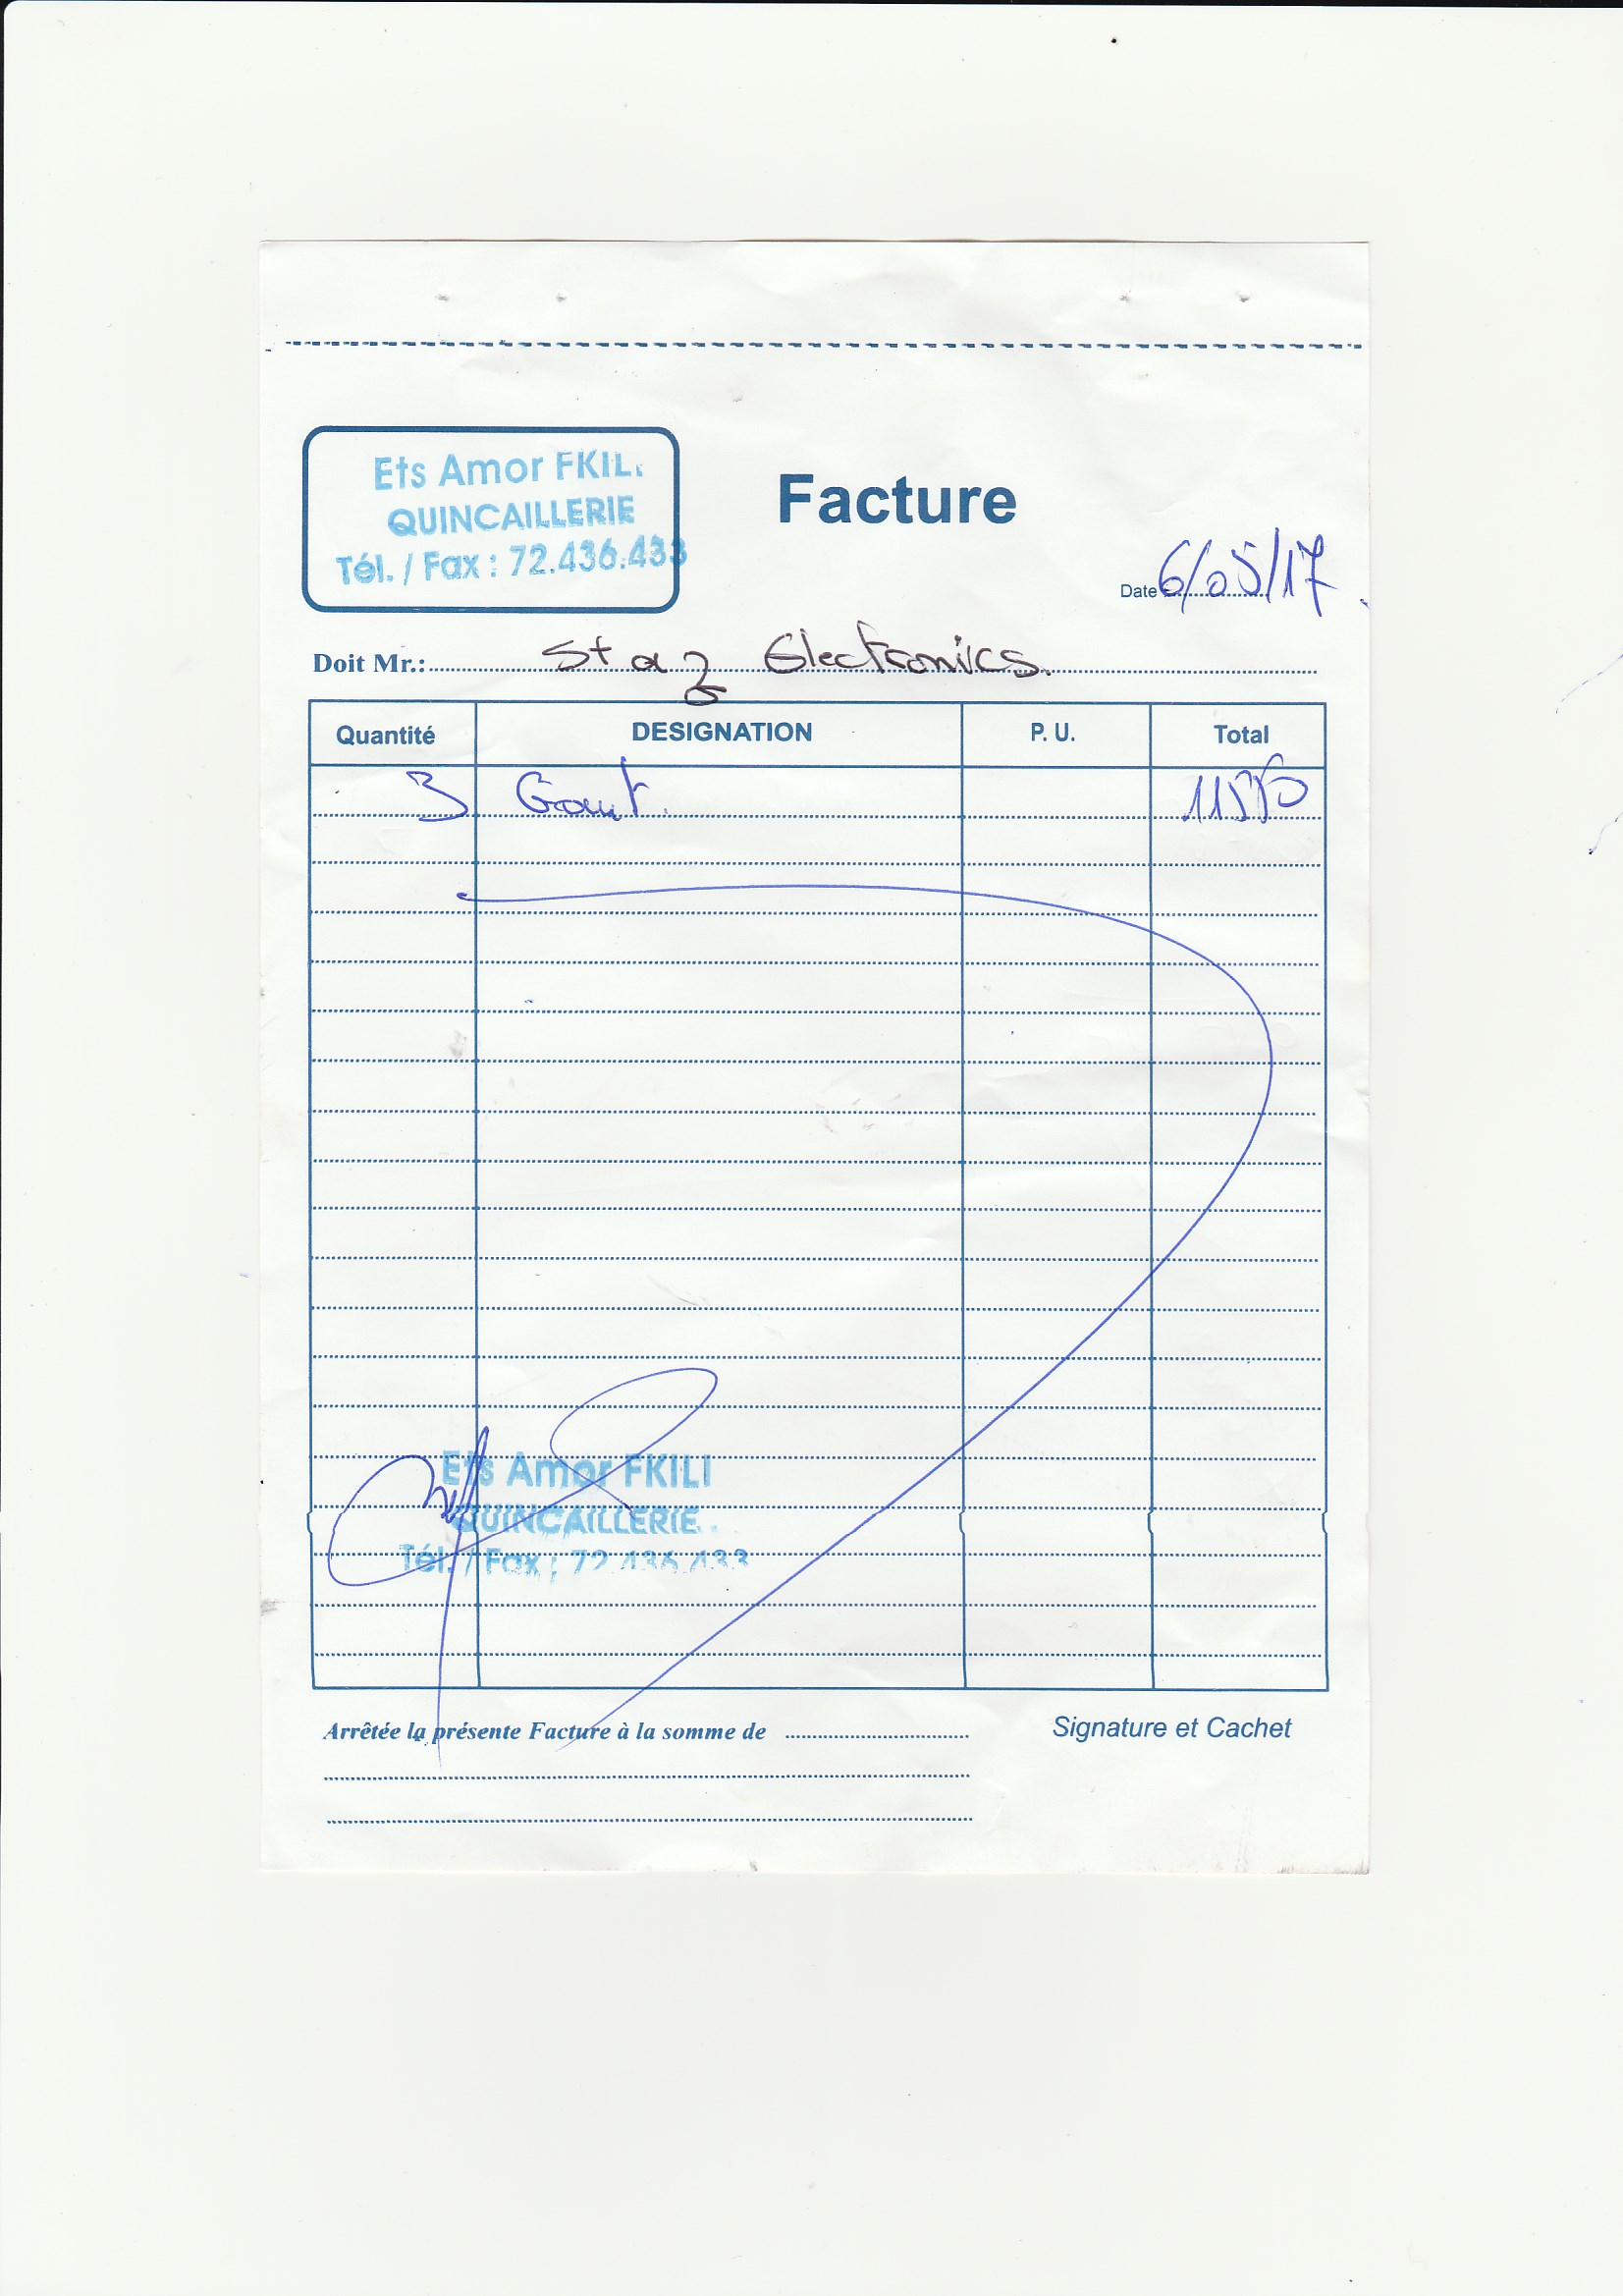 Ets Amor FKILI
QUINCAILLERIE
Tél. / Fax : 72.436.433
Facture
Date 6/05/17
Doit Mr.: Staz Electronics.
Quantité DESIGNATION P. U. Total
3 Gant.
Ets Amor FKILI
QUINCAILLERIE
Tél. / Fax : 72.436.433
Arrêtée la présente Facture à la somme de
Signature et Cachet